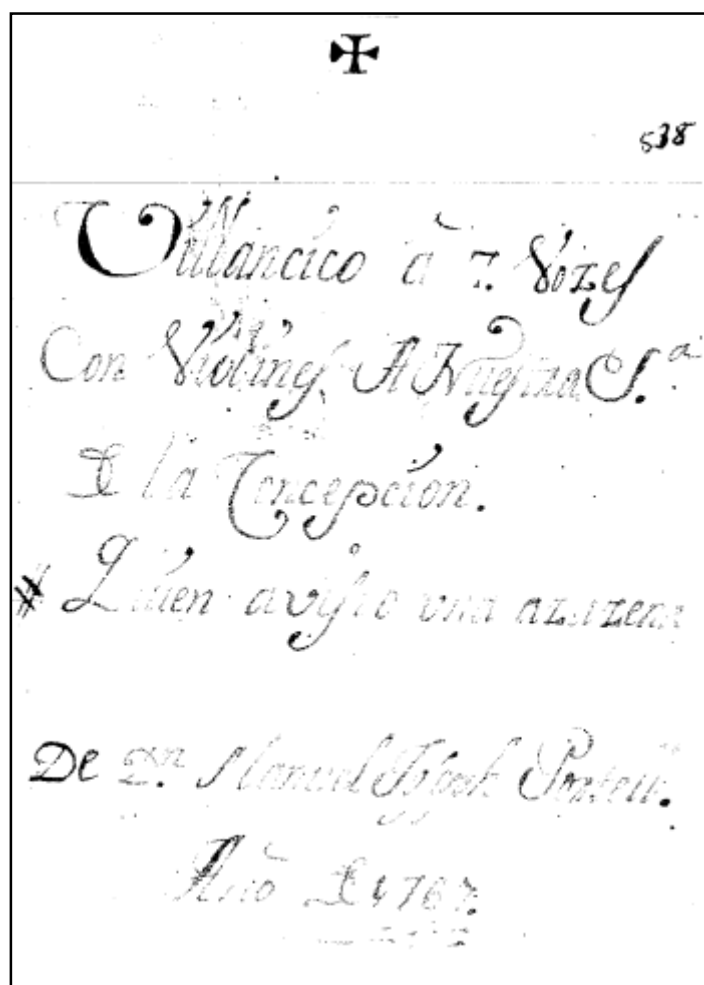 538
Villancico â 7. Vozes
Con Violines, A Nuestra S.ª
De la Concepcion.
# Quien a visto una azuzena
De Dn. Manuel
Año De 1767.